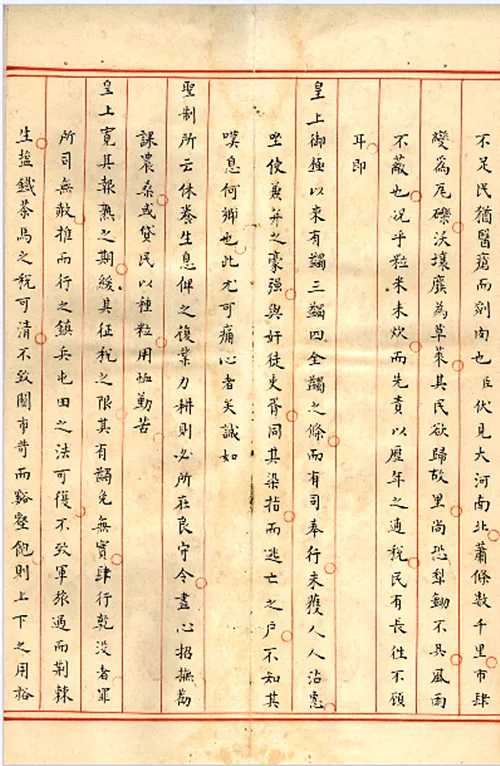 不足民猶醫瘡而剜肉也臣伏見大河南北蕭條數千里市肆
變為瓦礫沃壤廢為草萊其民欲歸故里尚恐犁鋤不具風雨
不蔽也况乎粒米未炊而先責以歷年之逋稅民有長往不顧
耳即
皇上御極以來有蠲三蠲四全蠲之條而有司奉行未獲人人沾惠
坐使兼并之豪强與奸徒吏胥同其染指而逃亡之戶不知其
嘆息何鄉也此尤可痛心者矣誠如
聖制所云休養生息俾之復業力耕則必所在良守令盡心招撫勸
課農桑或貸民以種粒用恤勤苦
皇上寛其報熟之期緩其征稅之限其有蠲免無實肆行乾没者罪
所司無赦推而行之鎮兵屯田之法可復不致軍旅過而荆棘
生鹽鐵茶馬之稅可清不致關市苛而谿壑飽則上下之用裕